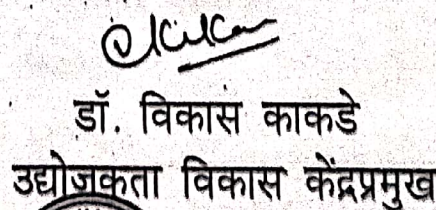 डॉ. विकास काकडे
उद्योजकता विकास केंद्रप्रमुख